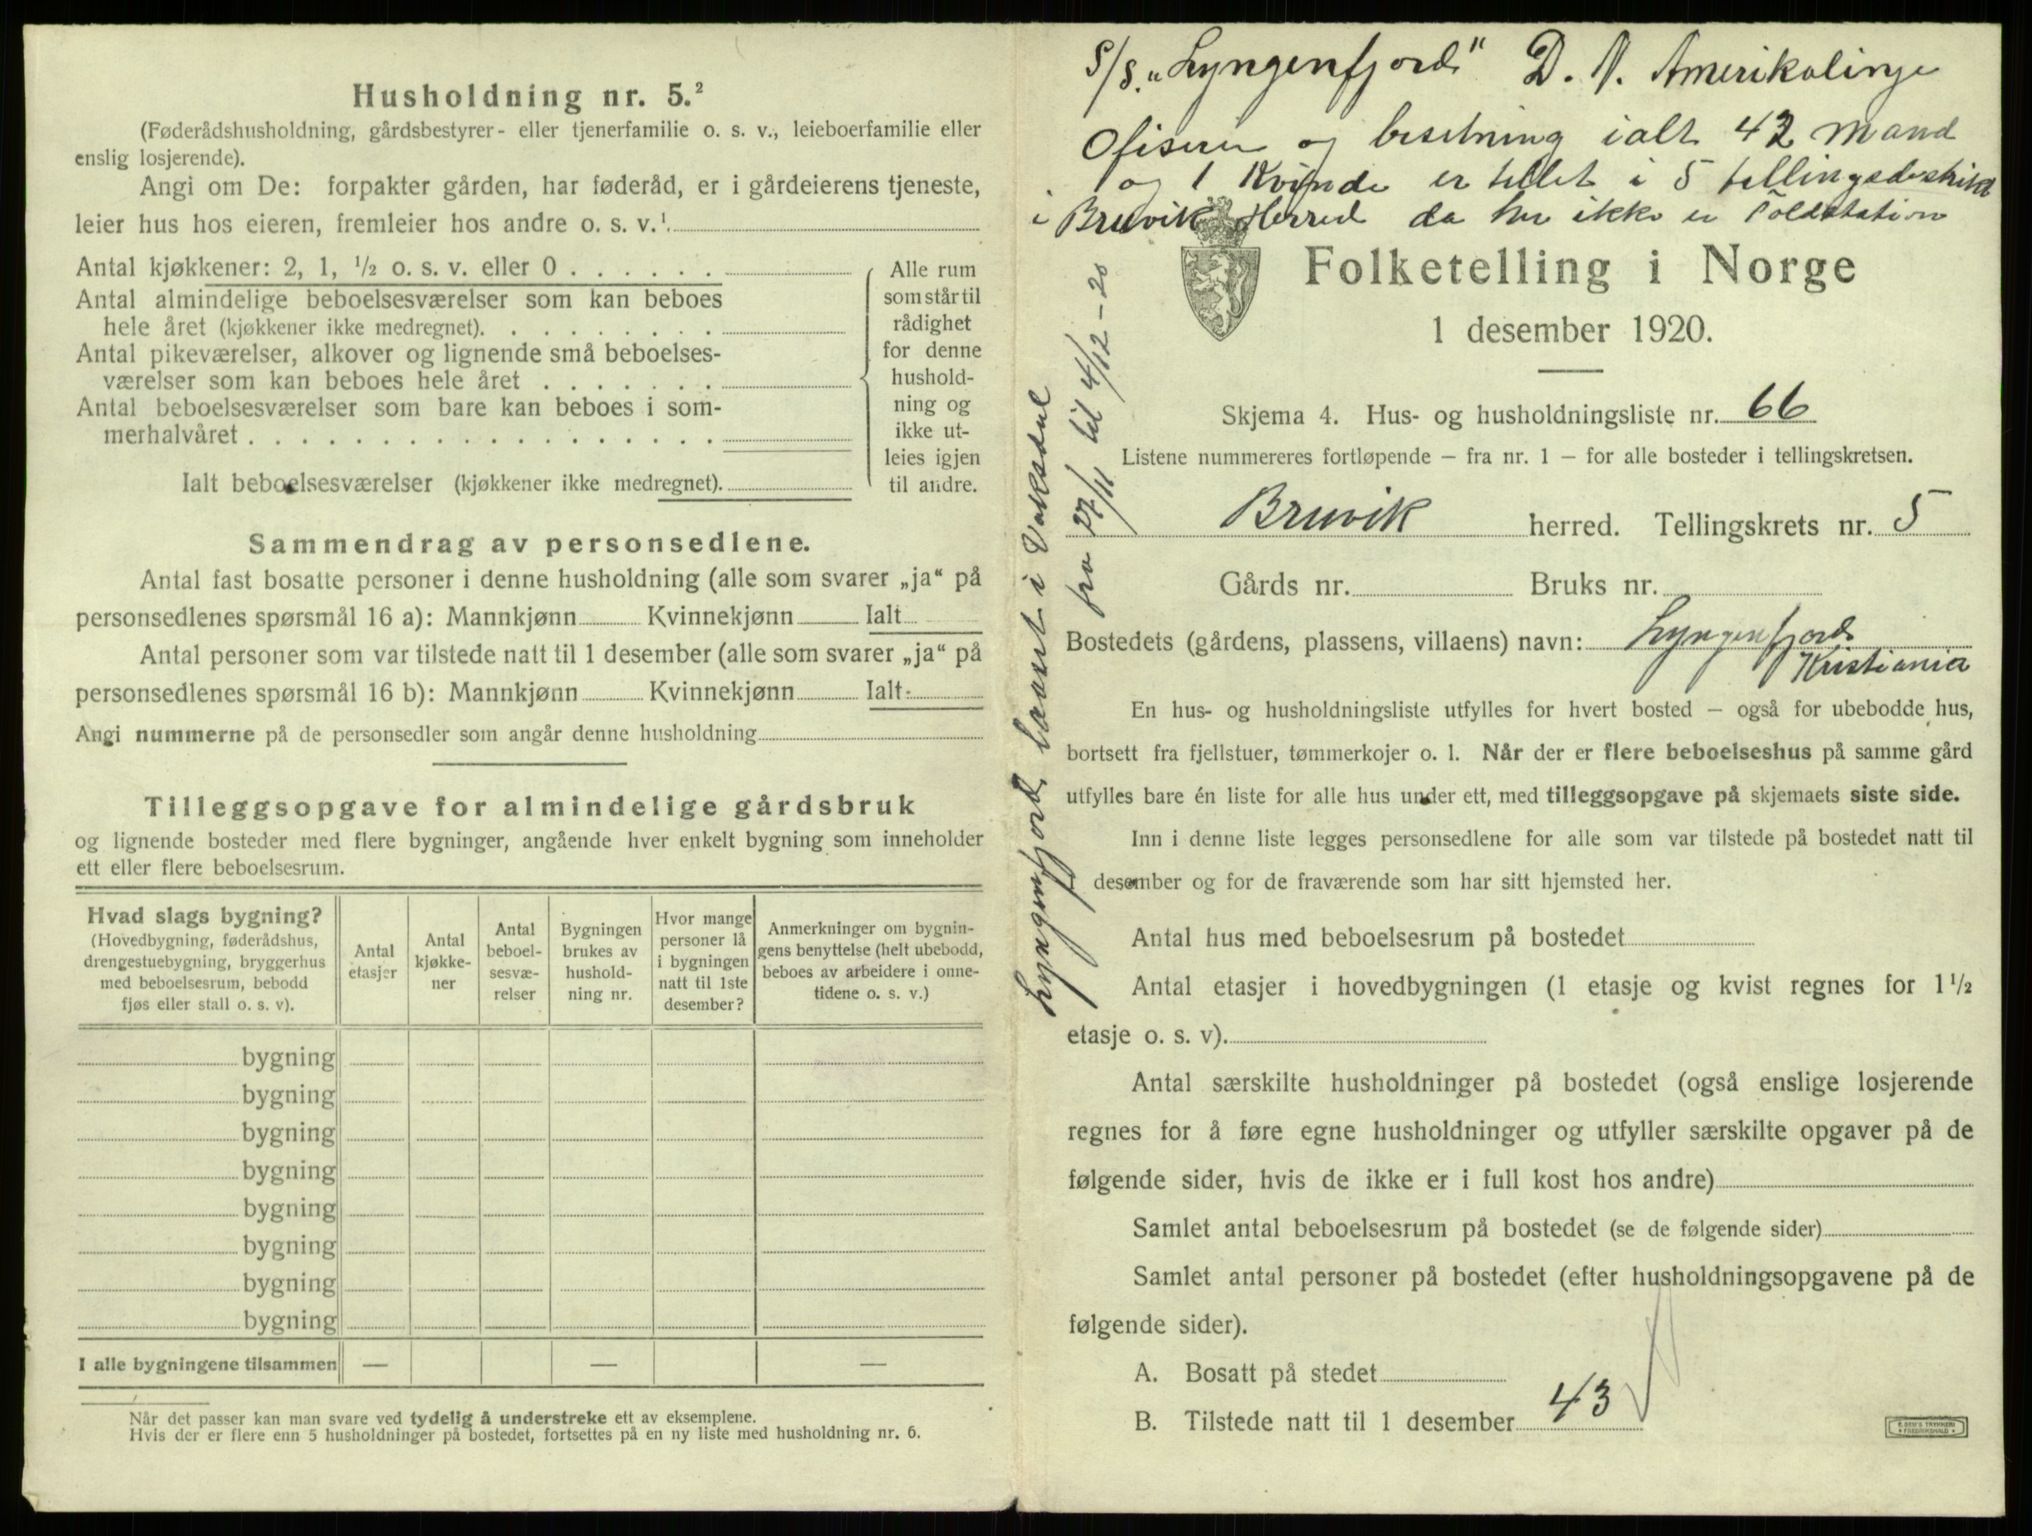 Husholdning nr. 5.²
(Føderådshusholdning, gårdsbestyrer- eller tjenerfamilie o. s. v., leieboerfamilie eller
enslig losjerende).
Angi om De: forpakter gården, har føderåd, er i gårdeierens tjeneste,
leier hus hos eieren, fremleier hos andre o. s. v.¹
Antal kjøkkener: 2, 1, ½ o. s. v. eller 0 . . . . . .
Antal almindelige beboelsesværelser som kan beboes
hele året (kjøkkener ikke medregnet). . . . . . . . .
Antal pikeværelser, alkover og lignende små beboelses-
værelser som kan beboes hele året . . . . . . .
Antal beboelsesværelser som bare kan beboes i som-
merhalvåret . . . . . . . . . . . . . . . . . .
Ialt beboelsesværelser (kjøkkener ikke medregnet).
Alle rum
som står til
rådighet
for denne
hushold-
ning og
ikke ut-
leies igjen
til andre.
Sammendrag av personsedlene.
Antal fast bosatte personer i denne husholdning (alle som svarer „ja“ på
personsedlenes spørsmål 16 a): Mannkjønn Kvinnekjønn Ialt
Antal personer som var tilstede natt til 1 desember (alle som svarer „ja“ på
personsedlenes spørsmål 16 b): Mannkjønn Kvinnekjønn Ialt
Angi nummerne på de personsedler som angår denne husholdning
Tilleggsopgave for almindelige gårdsbruk
og lignende bosteder med flere bygninger, angående hver enkelt bygning som inneholder
ett eller flere beboelsesrum.
Hvad slags bygning?
(Hovedbygning, føderådshus,
drengestuebygning, bryggerhus
med beboelsesrum, bebodd
fjøs eller stall o. s. v).
Antal
etasjer
Antal
kjøkke-
ner
Antal
beboel-
sesvæ-
relser
Bygningen
brukes av
hushold-
ning nr.
Hvor mange
personer lå
i bygningen
natt til 1ste
desember?
Anmerkninger om bygnin-
gens benyttelse (helt ubebodd,
beboes av arbeidere i onne-
tidene o. s. v.)
bygning
bygning
bygning
bygning
bygning
bygning
bygning
bygning
I alle bygningene tilsammen — — —
Når det passer kan man svare ved tydelig å understreke ett av eksemplene.
Hvis der er flere enn 5 husholdninger på bostedet, fortsettes på en ny liste med husholdning nr. 6.
S/S. „Lyngenfjord“ D. N. Amerikalinje
Ofiserer og besetning ialt 42 mand
og 1 Kvinde er tellet i 5 tellingsdistrikt
i Bruvik Herred da her ikke er Toldstation
Lyngenfjord, losset i Vaksdal
fra 27/11 til 4/12-20
Folketelling i Norge
1 desember 1920.
Skjema 4. Hus- og husholdningsliste nr. 66
Listene nummereres fortløpende — fra nr. 1 — for alle bosteder i tellingskretsen.
Bruvik herred. Tellingskrets nr. 5
Gårds nr. Bruks nr.
Bostedets (gårdens, plassens, villaens) navn: Lyngenfjord
Kristiania
En hus- og husholdningsliste utfylles for hvert bosted — også for ubebodde hus,
bortsett fra fjellstuer, tømmerkojer o. l. Når der er flere beboelseshus på samme gård
utfylles bare én liste for alle hus under ett, med tilleggsopgave på skjemaets siste side.
Inn i denne liste legges personsedlene for alle som var tilstede på bostedet natt til
desember og for de fraværende som har sitt hjemsted her.
Antal hus med beboelsesrum på bostedet
Antal etasjer i hovedbygningen (1 etasje og kvist regnes for 1½
etasje o. s. v).
Antal særskilte husholdninger på bostedet (også enslige losjerende
regnes for å føre egne husholdninger og utfyller særskilte opgaver på de
følgende sider, hvis de ikke er i full kost hos andre)
Samlet antal beboelsesrum på bostedet (se de følgende sider)
Samlet antal personer på bostedet (efter husholdningsopgavene på de
følgende sider).
A. Bosatt på stedet
B. Tilstede natt til 1 desember 43